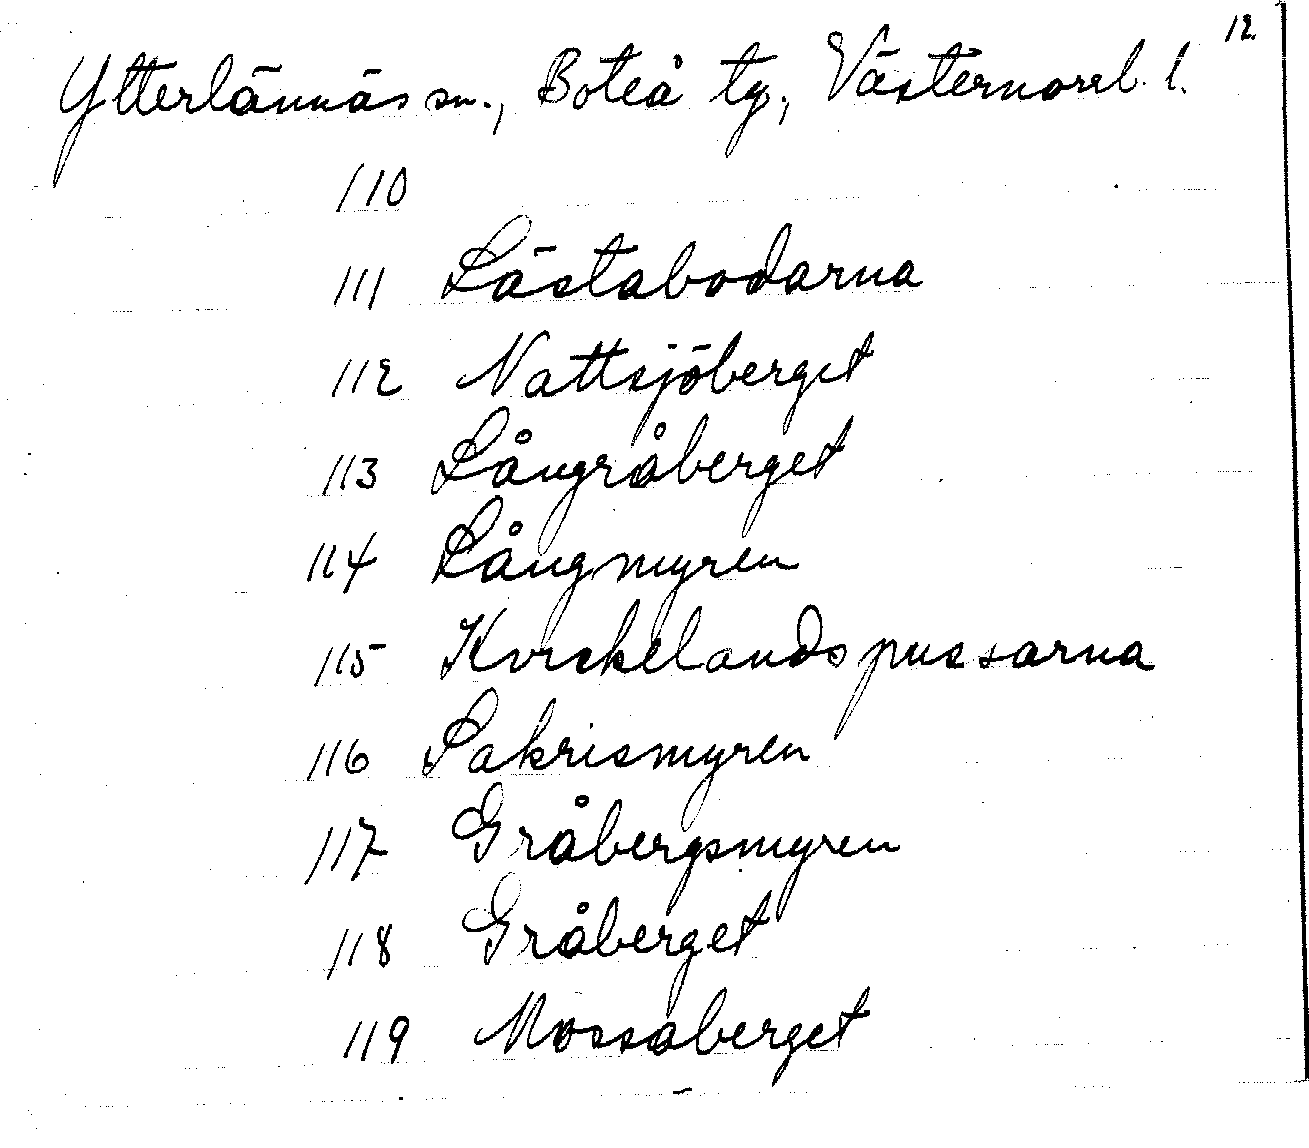 12.
Ytterlännäs sn., Boteå tg., Västernorrl. l.
110
111 Lästabodarna
112 Nattsjöberget
113 Långråberget
114 Långmyren
115 Kvickelandspussarna
116 Sakrismyren
117 Gråbergsmyren
118 Gråberget
119 Mossaberget